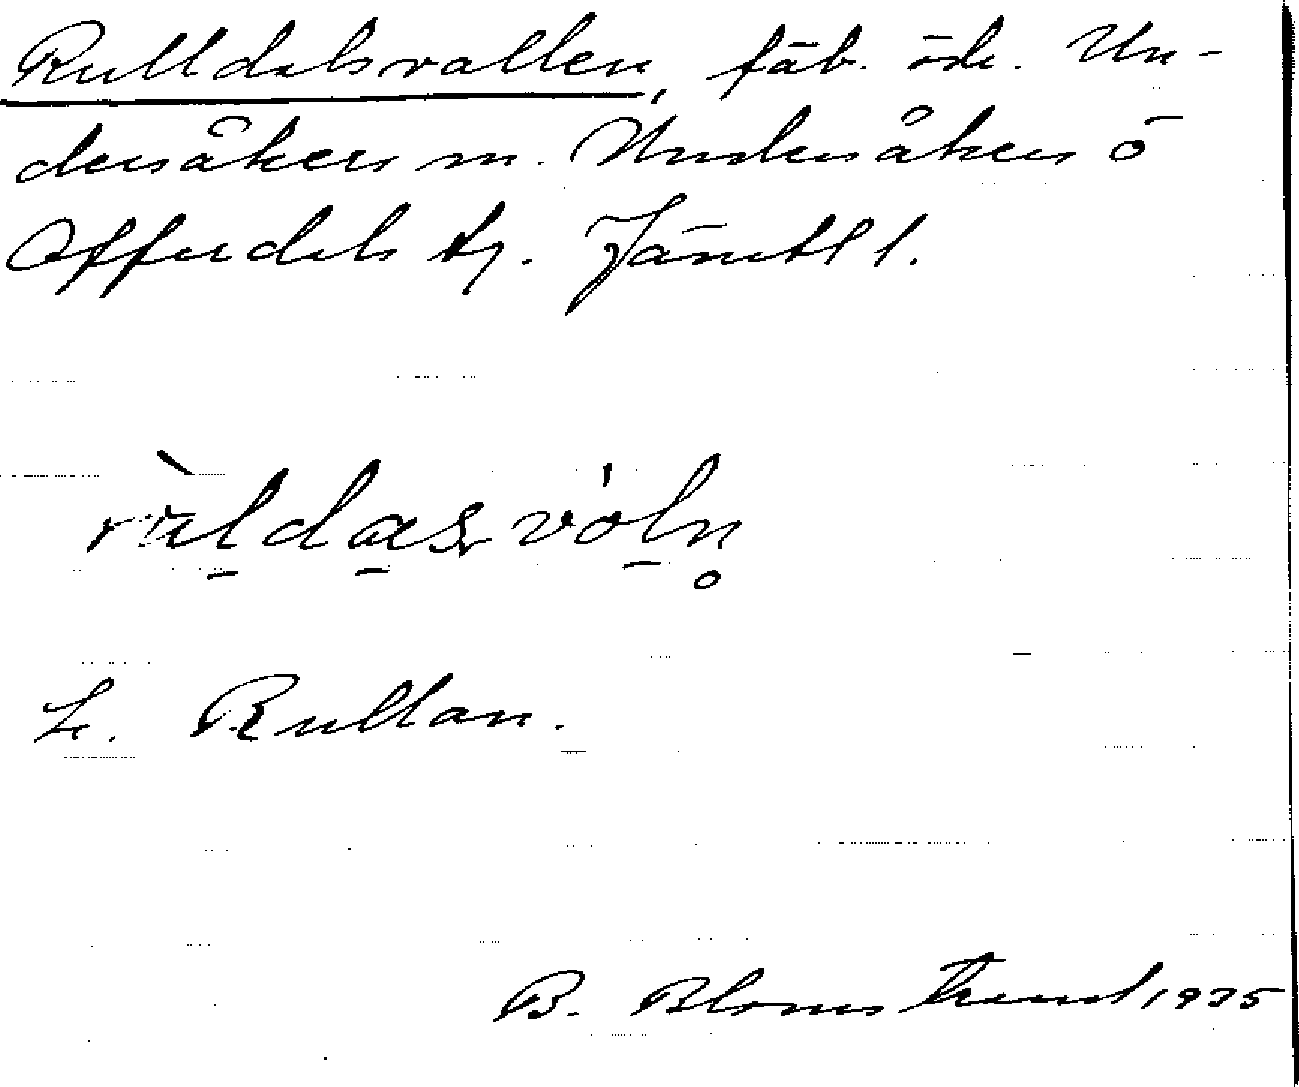 Rulldalsvallen, fäb. öde. Un-
dersåkers sn. Undersåkers o
Offerdals tg. Jämtl l.
ru̠lda̠s vo̠ln̥
L. Rullan.
B. Blomstrand 1935